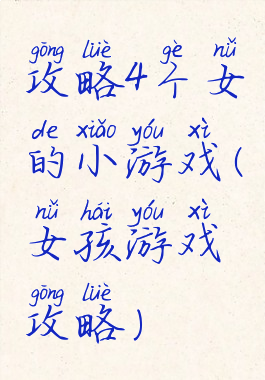 gōng lüè gè nǚ
攻略4个女
de xiǎo yóu xì
的小游戏(
nǚ hái yóu xì
女孩游戏
gōng lüè
攻略)